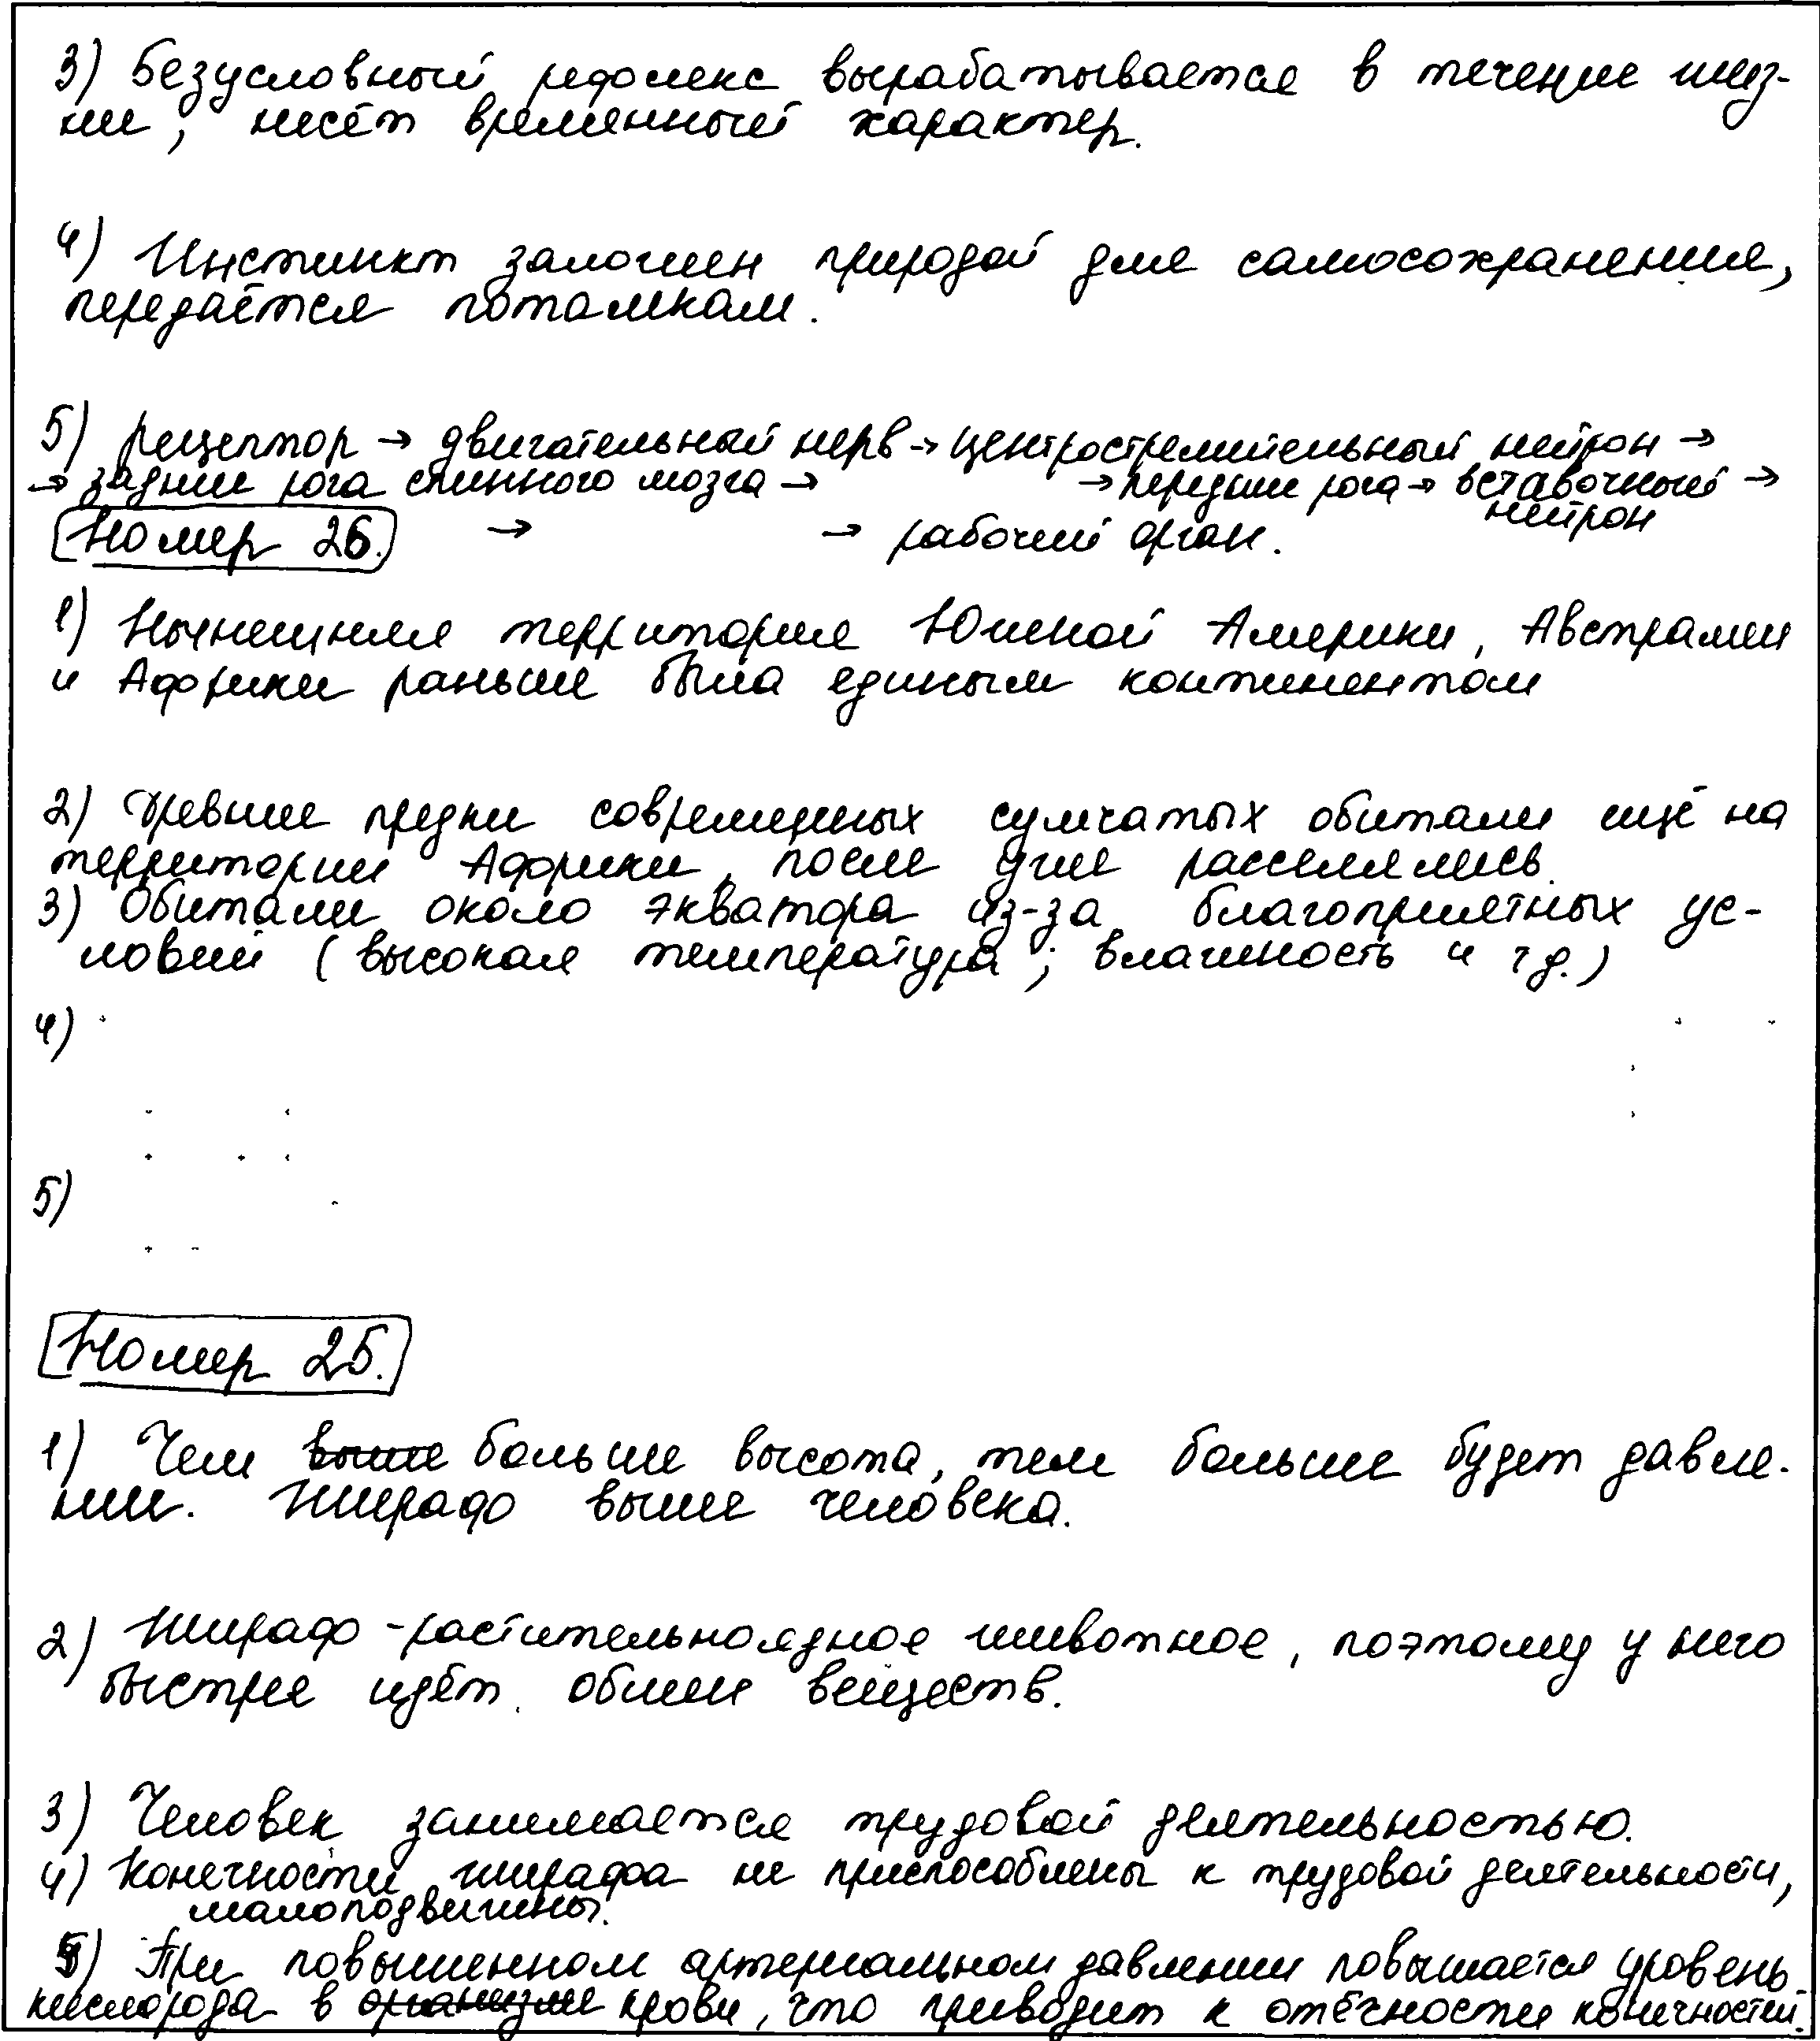 3) Безусловный рефлекс вырабатывается в течение жиз-
ни, несёт временный характер.
4) Инстинкт заложен природой для самосохранения,
передаётся потомкам.
5) рецептор → двигательный нерв → центростремительный нейрон →
→ задние рога спинного мозга → → передние рога → вставочный →
нейрон
Номер 26. → → рабочий орган.
1) Нынешняя территория Южной Америки, Австралии
и Африки раньше была единым континентом
2) Древние предки современных сумчатых обитали ещё на
территории Африки, после уже расселялись.
3) Обитали около экватора из-за благоприятных ус-
ловий (высокая температура; влажность и тд.)
4)
5)
Номер 25.
1) Чем выше больше высота, тем больше будет давле-
ние. Жираф выше человека.
2) Жираф - растительноядное животное, поэтому у него
быстрее идёт обмен веществ.
3) Человек занимается трудовой деятельностью.
4) Конечности жирафа не приспособлены к трудовой деятельности,
малоподвижны.
5) При повышенном артериальном давлении повышается уровень
кислорода в организме крови, что приводит к отёчности конечностей.